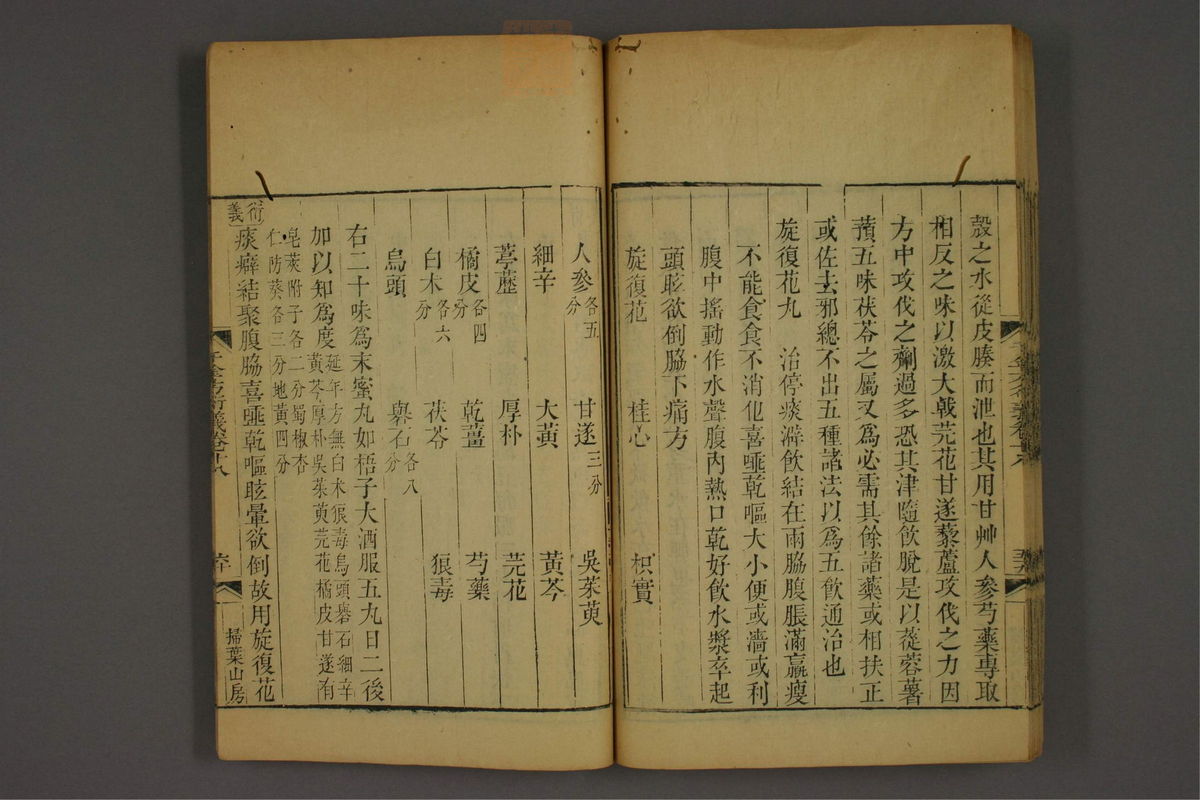 殼之水從皮腠而泄也其用甘艸人參芍藥專取
相反之味以激大戟芫花甘遂藜蘆攻伐之力因
方中攻伐之劑過多恐其津隨飲脫是以蓯蓉薯
蕷五味茯苓之屬又爲必需其餘諸藥或相扶正
或佐去邪總不出五種諸法以爲五飲通治也
旋復花丸 治停痰澼飲結在兩脇腹脹滿羸瘦
不能食食不消化喜唾乾嘔大小便或濇或利
腹中搖動作水聲腹內熱口乾好飲水漿卒起
頭眩欲倒脇下痛方
旋復花 桂心 枳實
人參各五分 甘遂三分 吳茱萸
細辛 大黃 黃芩
葶藶 厚朴 芫花
橘皮各四分 乾薑 芍藥
白朮各六分 茯苓 狼毒
烏頭 礜石各八分
右二十味爲末蜜丸如梧子大酒服五丸日二後
加以知爲度延年方無白朮狼毒烏頭礜石細辛
黃芩厚朴吳茱萸芫花橘皮甘遂有
皂莢附子各二分蜀椒杏
仁防葵各三分地黃四分
衍義 痰癖結聚腹脇喜唾乾嘔眩暈欲倒故用旋復花
千金方衍義卷十八
掃葉山房